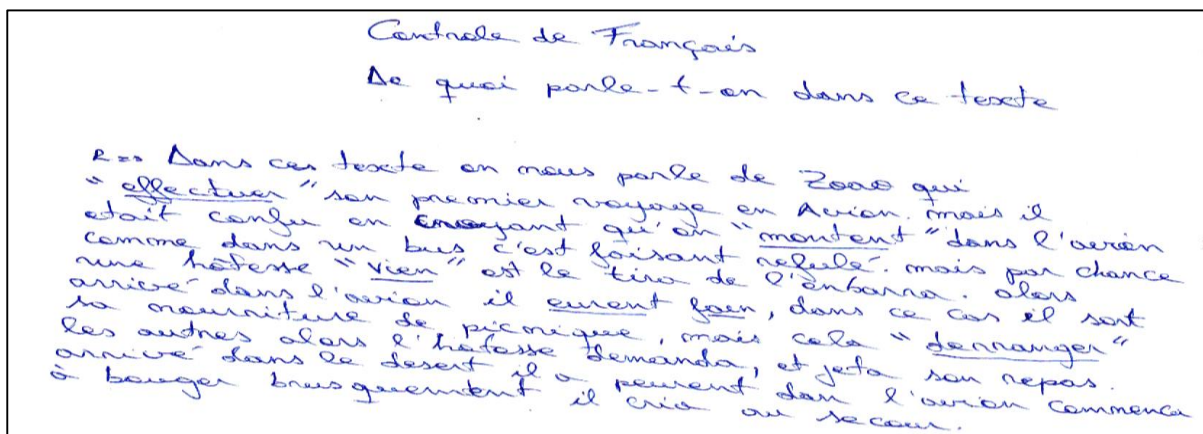 Controle de Français
De quoi parle-t-on dans ce texte
R=> Dans ces texte on nous parle de Zoao qui
"effectuer" son premier voyage en Avion. mais il
etait confu en croyant qu'on "montent" dans l'avion
comme dans un bus c'est faisant refulé. mais par chance
une hôtesse "vien" est le tira de l'enbarra. alors
arrivé dans l'avion il eurent faen, dans ce cas il sort
sa nourriture de picnique, mais cela "derranger"
les autres alors l'hotesse demanda, et jeta son repas.
arrivé dans le desert il a peurent dan l'avion commenca
à bouger brusquement il cria au secour.